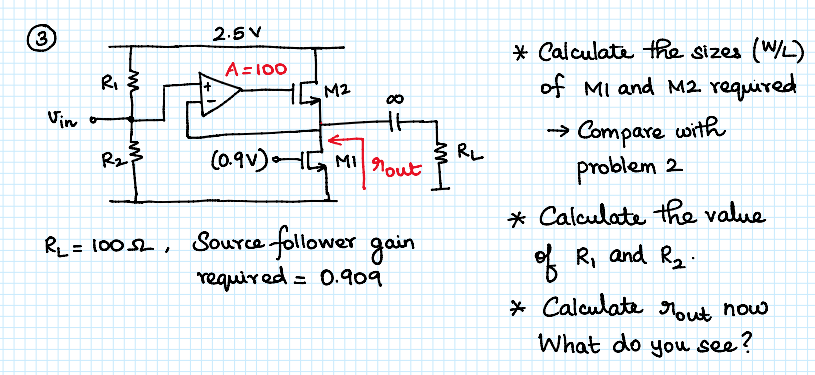 ③
2.5V
A=100
R1
+
-
M2
∞
Vin
R2
(0.9V)
M1
rout
RL
RL = 100Ω, Source follower gain
required = 0.909
* Calculate the sizes (W/L)
of M1 and M2 required
→ Compare with
problem 2
* Calculate the value
of R1 and R2.
* Calculate rout now
What do you see?